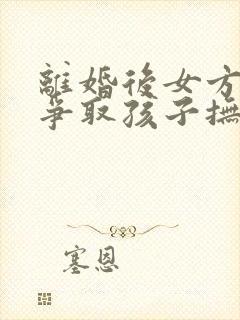 離婚後女方
爭取孩子撫
塞恩